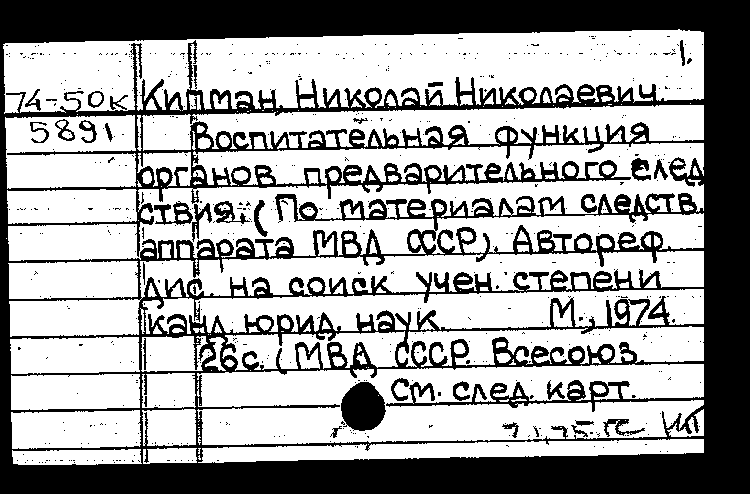 1.
74-50к Кипман, Николай Николаевич.
5891 Воспитательная функция
органов предварительного след
ствия. (По материалам следств.
аппарата МВД СССР). Автореф.
дис. на соиск учен. степени
канд. юрид. наук. М., 1974.
26с. (МВД СССР. Всесоюз.
См. след. карт.